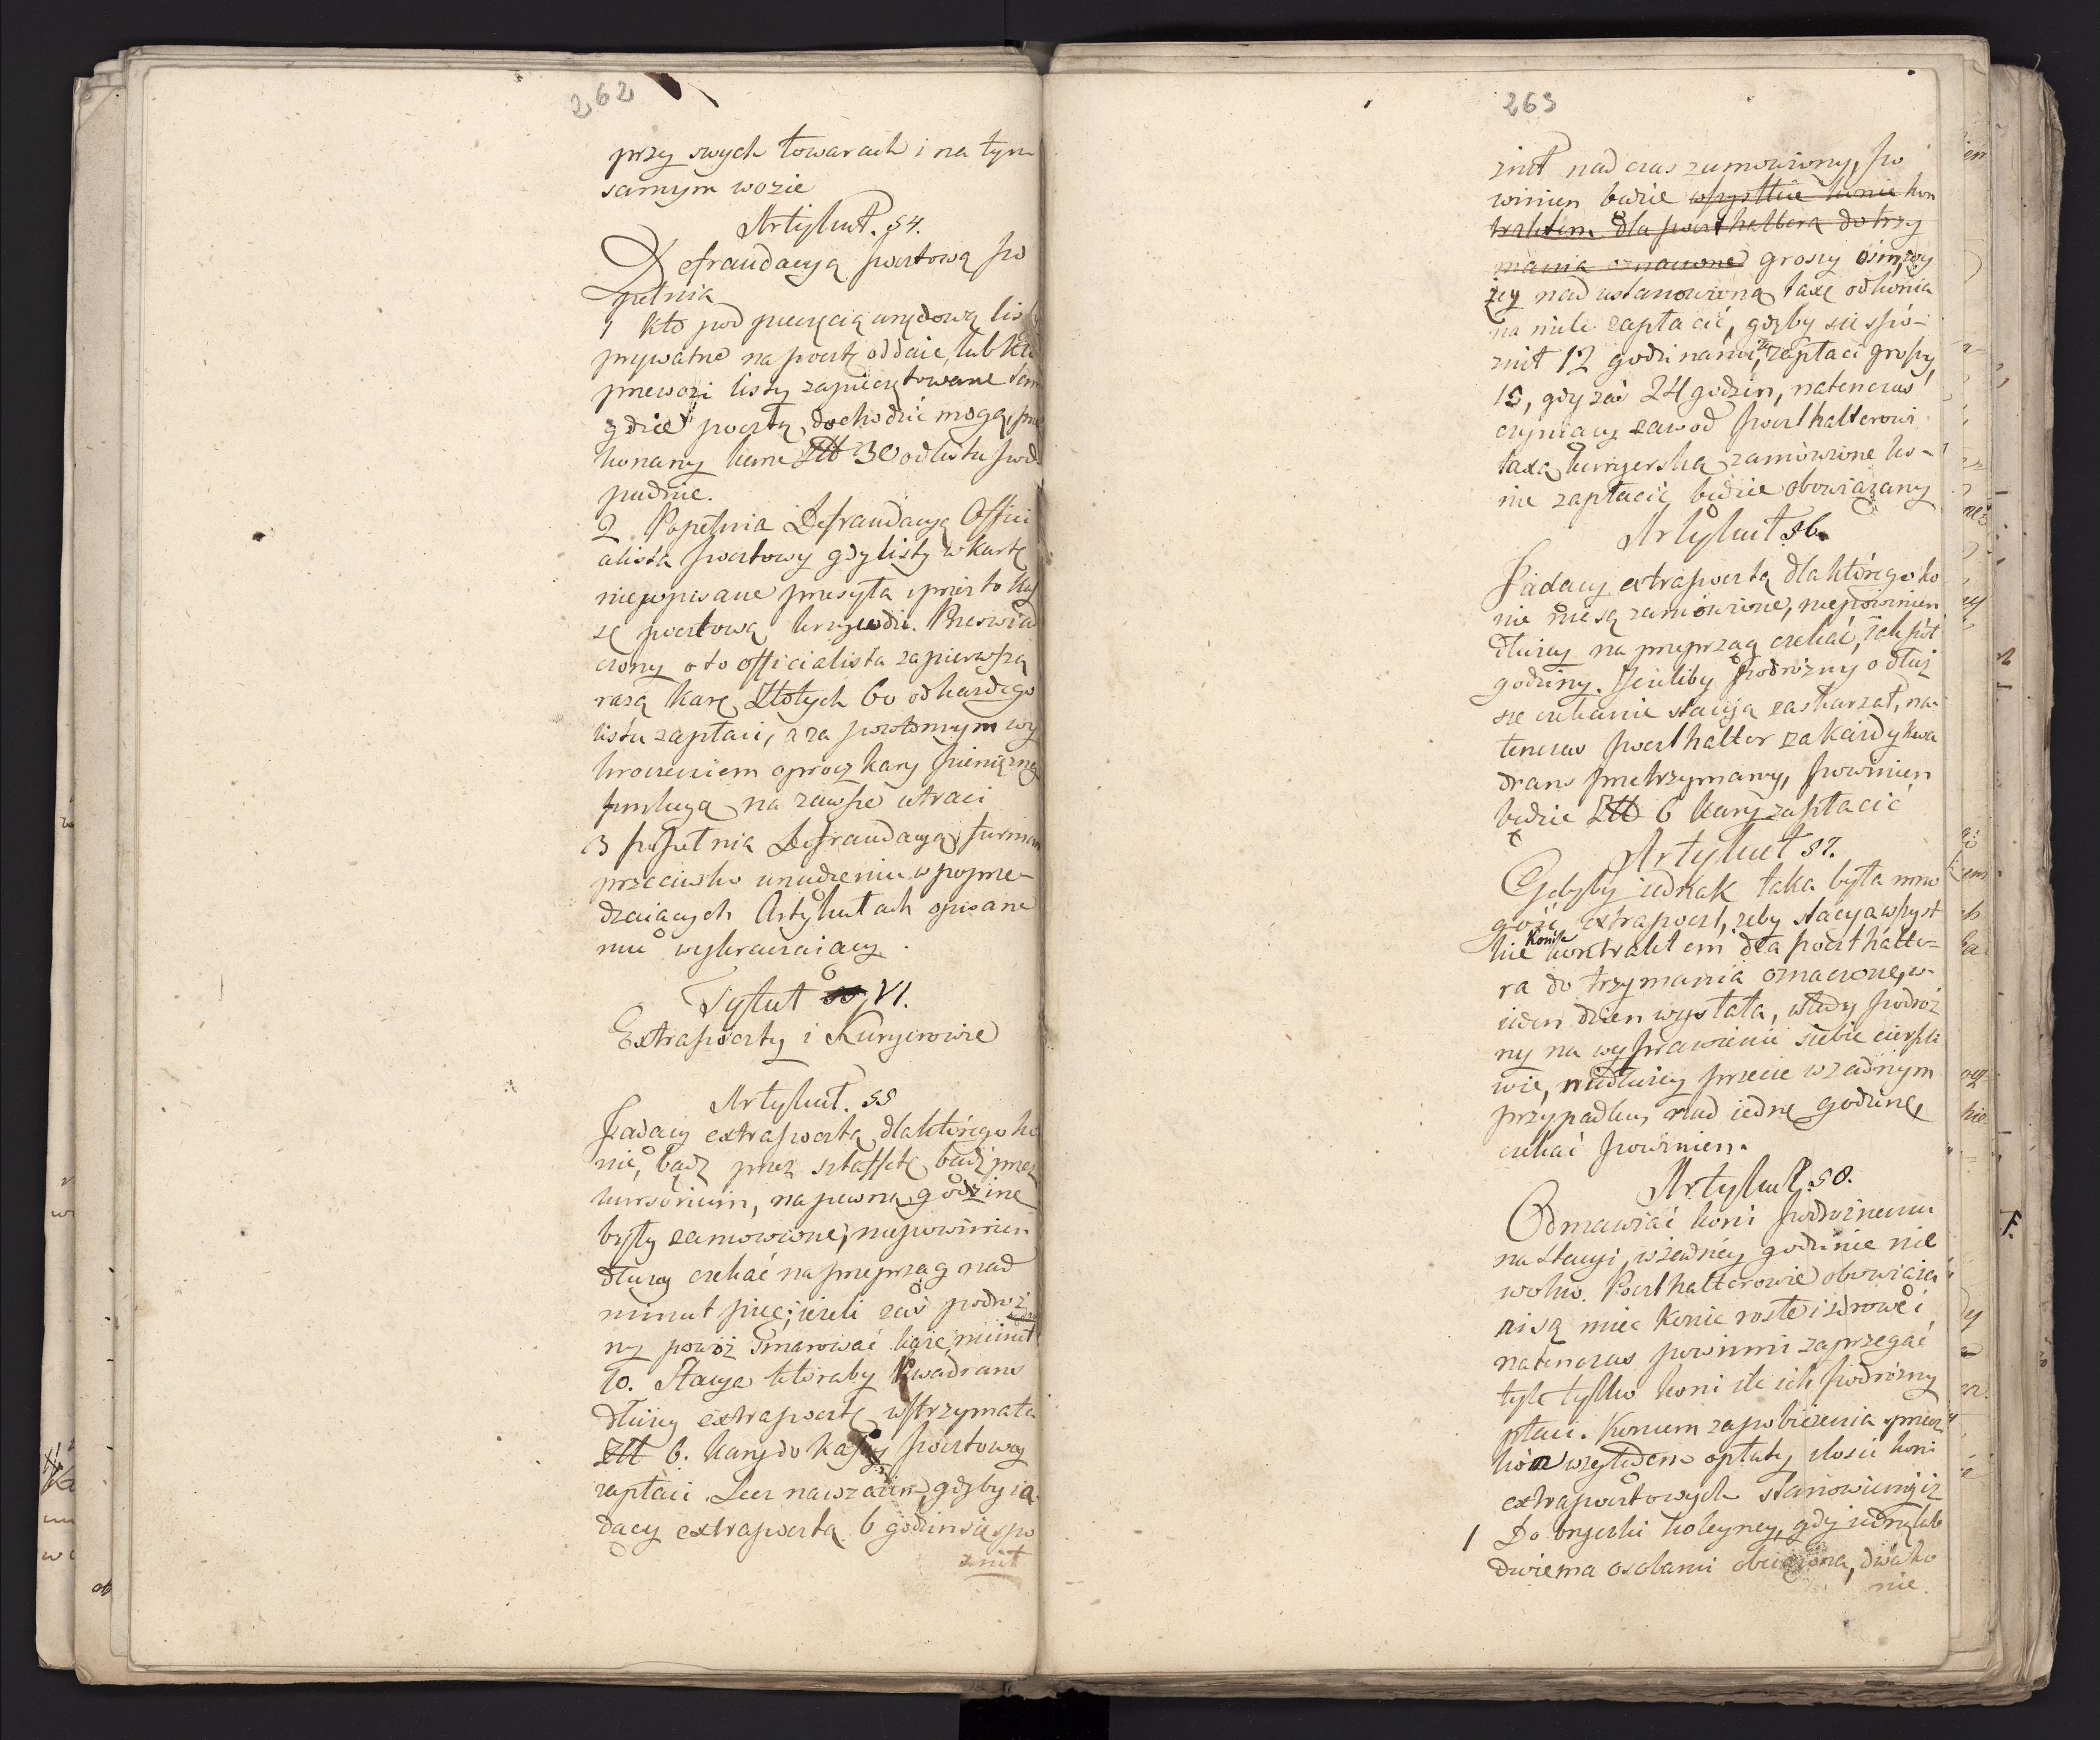 262
przy swych towarach i na tym
samym wozie
Artykuł. 54.
Defraudacyą pocztową po
pełnia
1 Kto pod pieczęcią urzędową listy
prywatne na pocztę oddaie, lub kto
przewozi listy zapieczętowane tam
gdzie pocztą dochodzić mogą, prze
konany karze Złł 30 od listu pod
padnie.
2 Popełnia Defraudacyą Offici
alista pocztowy gdy listy w kartę
niewpisane przesyła i przez to kas
sę pocztową krzywdzi. Przeświad
czony o to officialista za pierwszą
razą karę Złotych 60 od każdego
listu zapłaci, a za powtórnym wy
kroczeniem oprocz kary pieniężney
posługą na zawsze utraci
3 popełnia Defraudacyą furman
przeciwko urządzeniu w poprze-
dzaiących Artykułach opisane
mu wykraczaiący.
Tytuł VI.
Extrapoczty i Kuryerowie
Artykuł. 55
Jadący extrapocztą dla którego ko
nie, bądź przez sztaffetę bądź przez
kursorium, na pewną godzinę
były zamowione, niepowinien
dłużey czekać na przeprząg nad
minut pięć; ieżeli zaś podroż
ny powoz smarować każe, minut
10. Stacya któraby kwadrans
dłużey extrapocztę wstrzymała
Złł 6. kary do kassy pocztowey
zapłaci. Lecz nawzaiem, gdyby ia-
dący extrapocztą 6 godzin się spo
znił
263
znił nad czas zumowiony, po
winien będzie wszystkie konie kon
traktem dla poczthaltera do trzy
mania oznaczone groszy ośm, wy
żey nad ustanowioną taxę od konia
na mile zapłacić, gdyby się spó-
znił 12 godzinami, zapłaci groszy
15, gdy zaś 24 godzin, natenczas
czyniący zawod poczthalterowi
taxą kuryerską zamówione ko-
nie zapłacić będzie obowiązany
Artykuł 56.
Jadący extrapocztą dla którego ko
nie nie są zamówione, niepowinien
dłużey na przeprząg czekać, iak pół
godziny. Jeżeliby podróżny o dłuż
sze czekanie stacyą zaskarżał, na-
tenczas poczthalter za każdy kwa
drans przetrzymany, powinien
będzie Złł 6 kary zapłacić
Artykuł 57.
Gdyby iednak taka była mno
gość extrapoczt, żeby stacya wszyst
kie konie kontraktem dla poczthalte-
ra do trzymania oznaczone, w
ieden dzien wysłała, wtedy podroż
ny na wyprawienie siebie cierpli
wie, niedłużey przecie w żadnym
przypadku, nad iedną godzinę,
czekać powinien.
Artykuł. 58.
Odmawiać koni podrożnemu
na Stacyi, w żadnéy godzinie nie
wolno. Poczthalterowie obowiąza
ni są miec konie rosłe i zdrowe i
natenczas powinni zaprzegać
tyle tylko koni ile ich podróżny
płaci. Koncem zapobieżenia sprzecz
kom względem opłaty ilosci koni
extrapocztowych stanowiemy iż
1 Do bryczki koleyney, gdy iedną lub
dwiema osobami obciążona, dwa ko
nie.